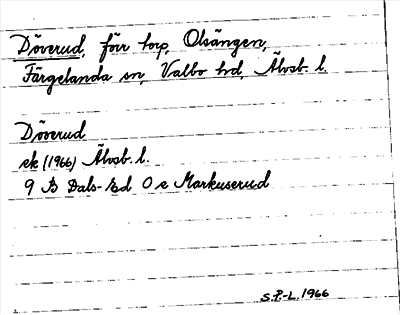 Döverud, förr torp, Olsängen,
Färgelanda sn, Valbo hd, Älvsb. l.
Döverud
ek (1966) Älvsb. l.
9 B Dals-Ed 0 e Markuserud
S.P.-L. 1966